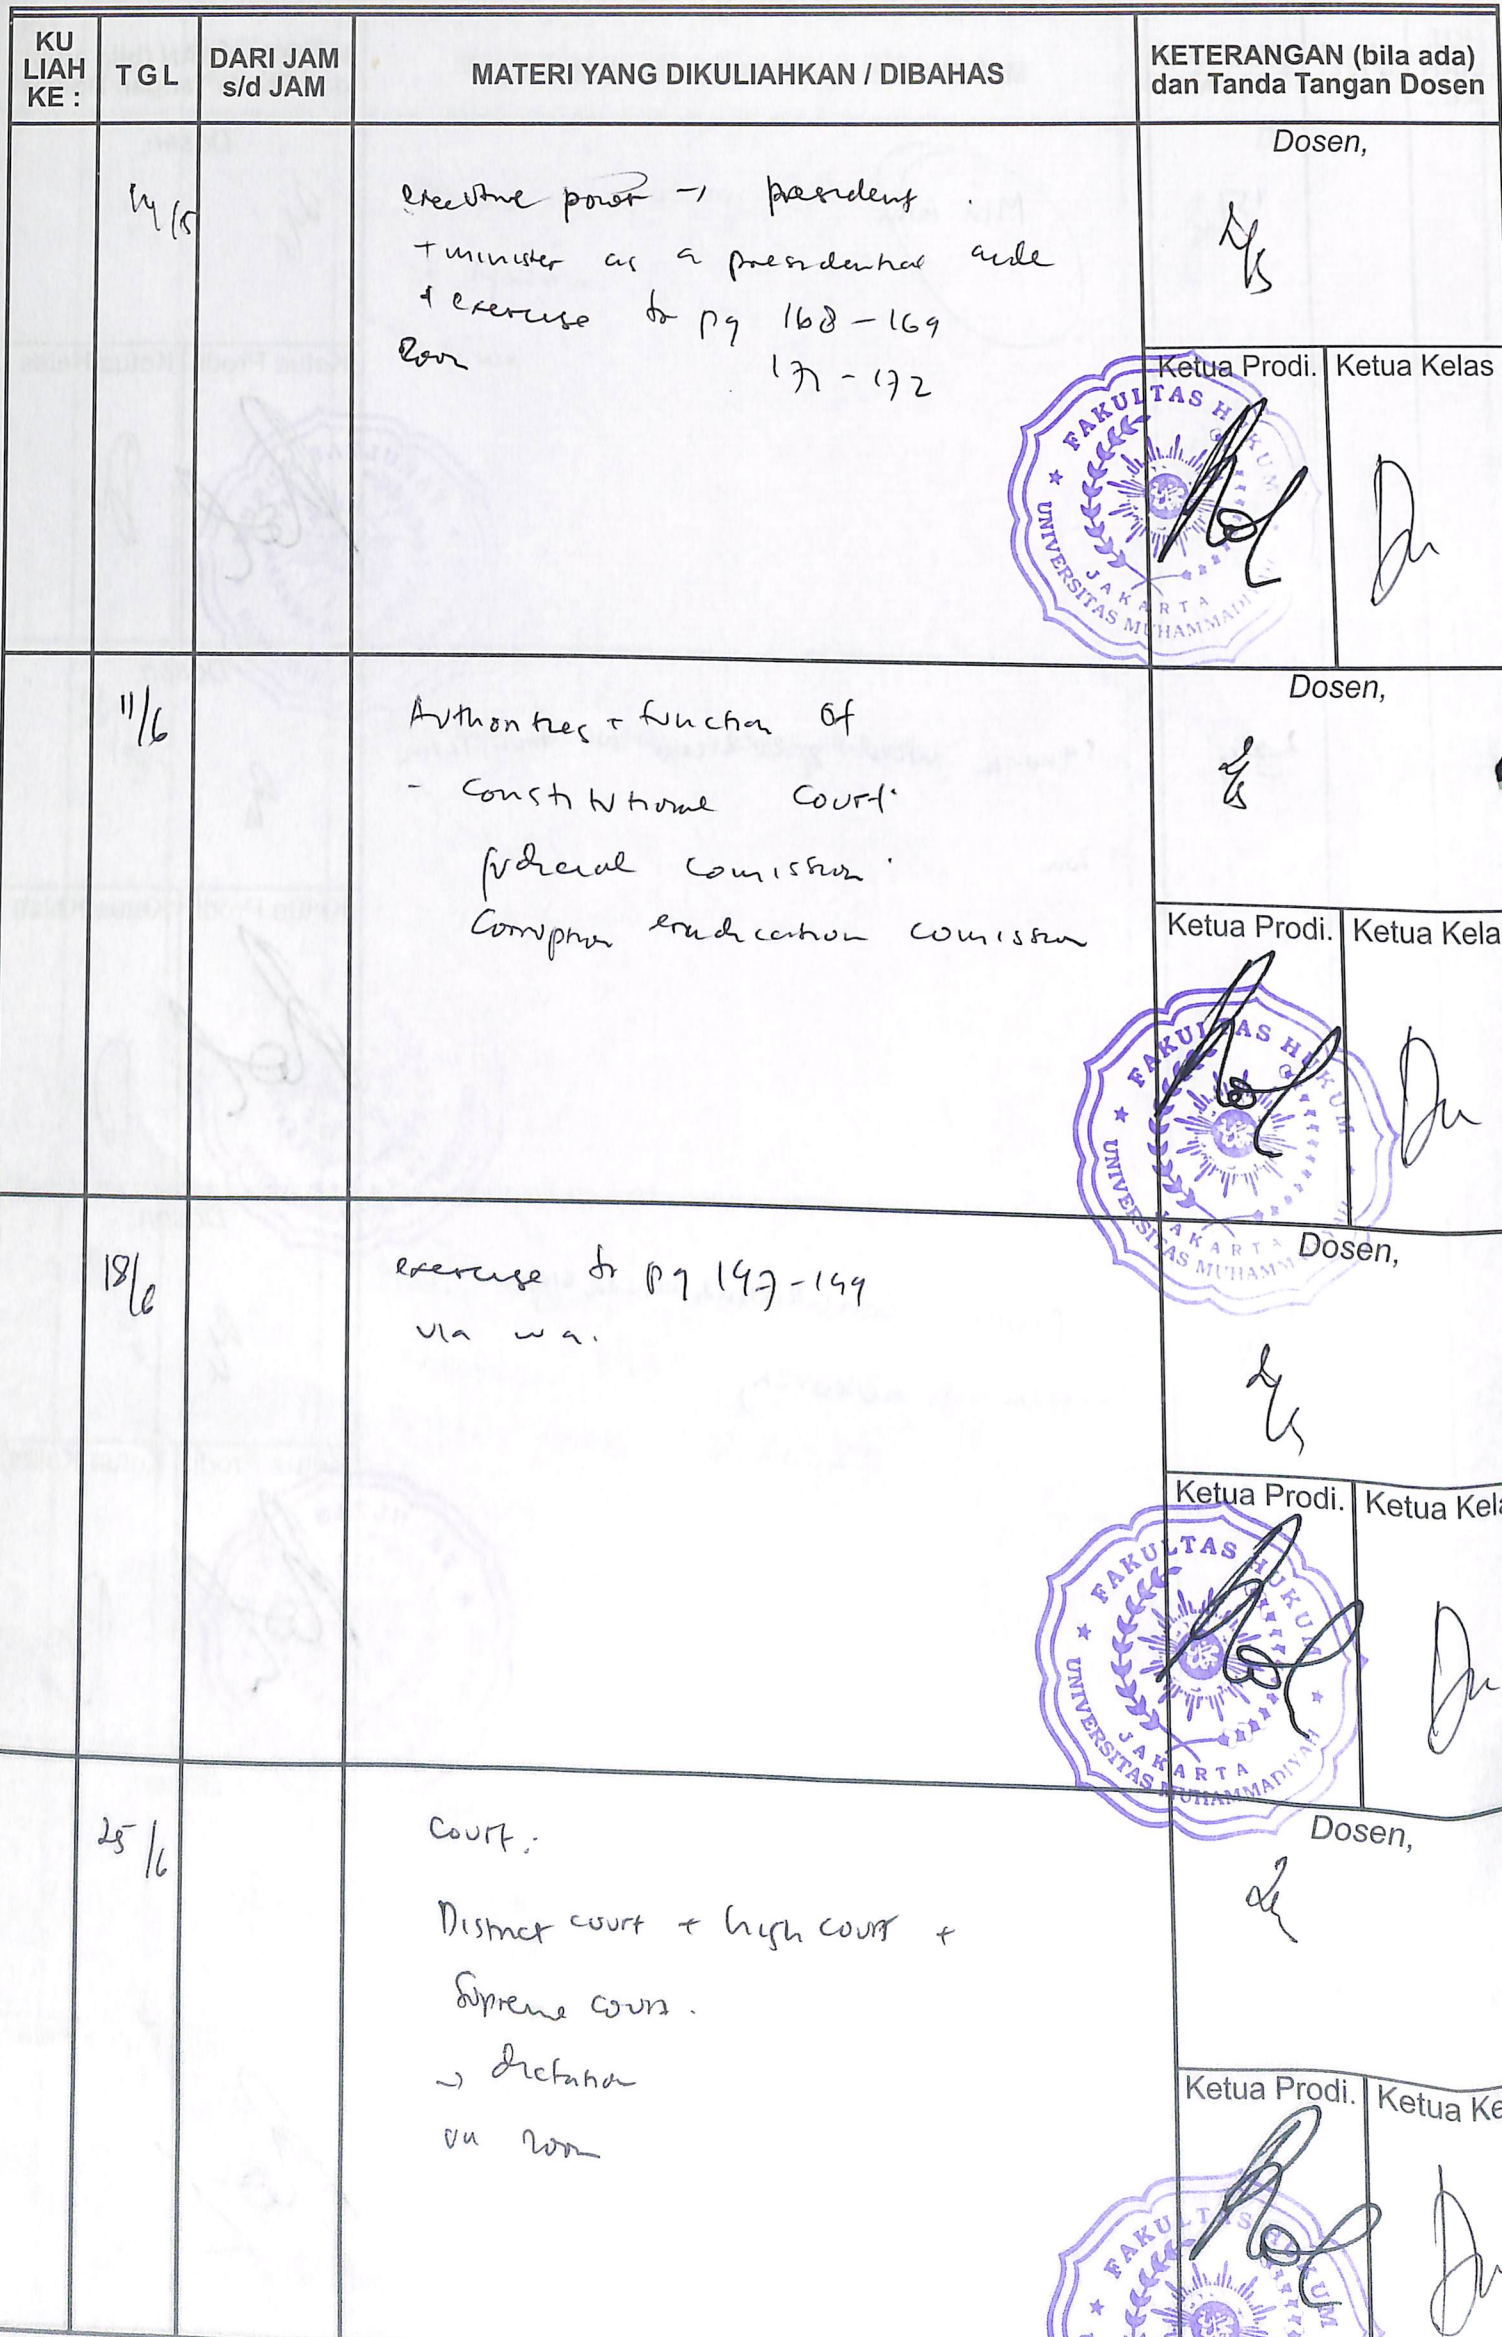 KU LIAH KE :
T G L
DARI JAM s/d JAM
MATERI YANG DIKULIAHKAN / DIBAHAS
KETERANGAN (bila ada) dan Tanda Tangan Dosen
14/5
executive power → president.
+ minister as a presidential aide
+ exercise to pg 168 - 169
Zoom 171 - 172
Dosen,
Ketua Prodi. Ketua Kelas
FAKULTAS HUKUM
UNIVERSITAS MUHAMMADIYAH
JAKARTA
11/6
Authorities + function of
- Constitutional Court
Judicial Comission
Corruption eradication comission
Dosen,
Ketua Prodi. Ketua Kela
FAKULTAS HUKUM
UNIVERSITAS MUHAMM
JAKARTA
18/6
exercise to pg 147 - 149
via wa.
Dosen,
Ketua Prodi. Ketua Kela
FAKULTAS HUKUM
UNIVERSITAS MUHAMMADIYAH
JAKARTA
25/6
Court :
District court + high court +
Supreme court.
→ dictation
via zoom
Dosen,
Ketua Prodi. Ketua Ke
FAKULTAS HUKUM